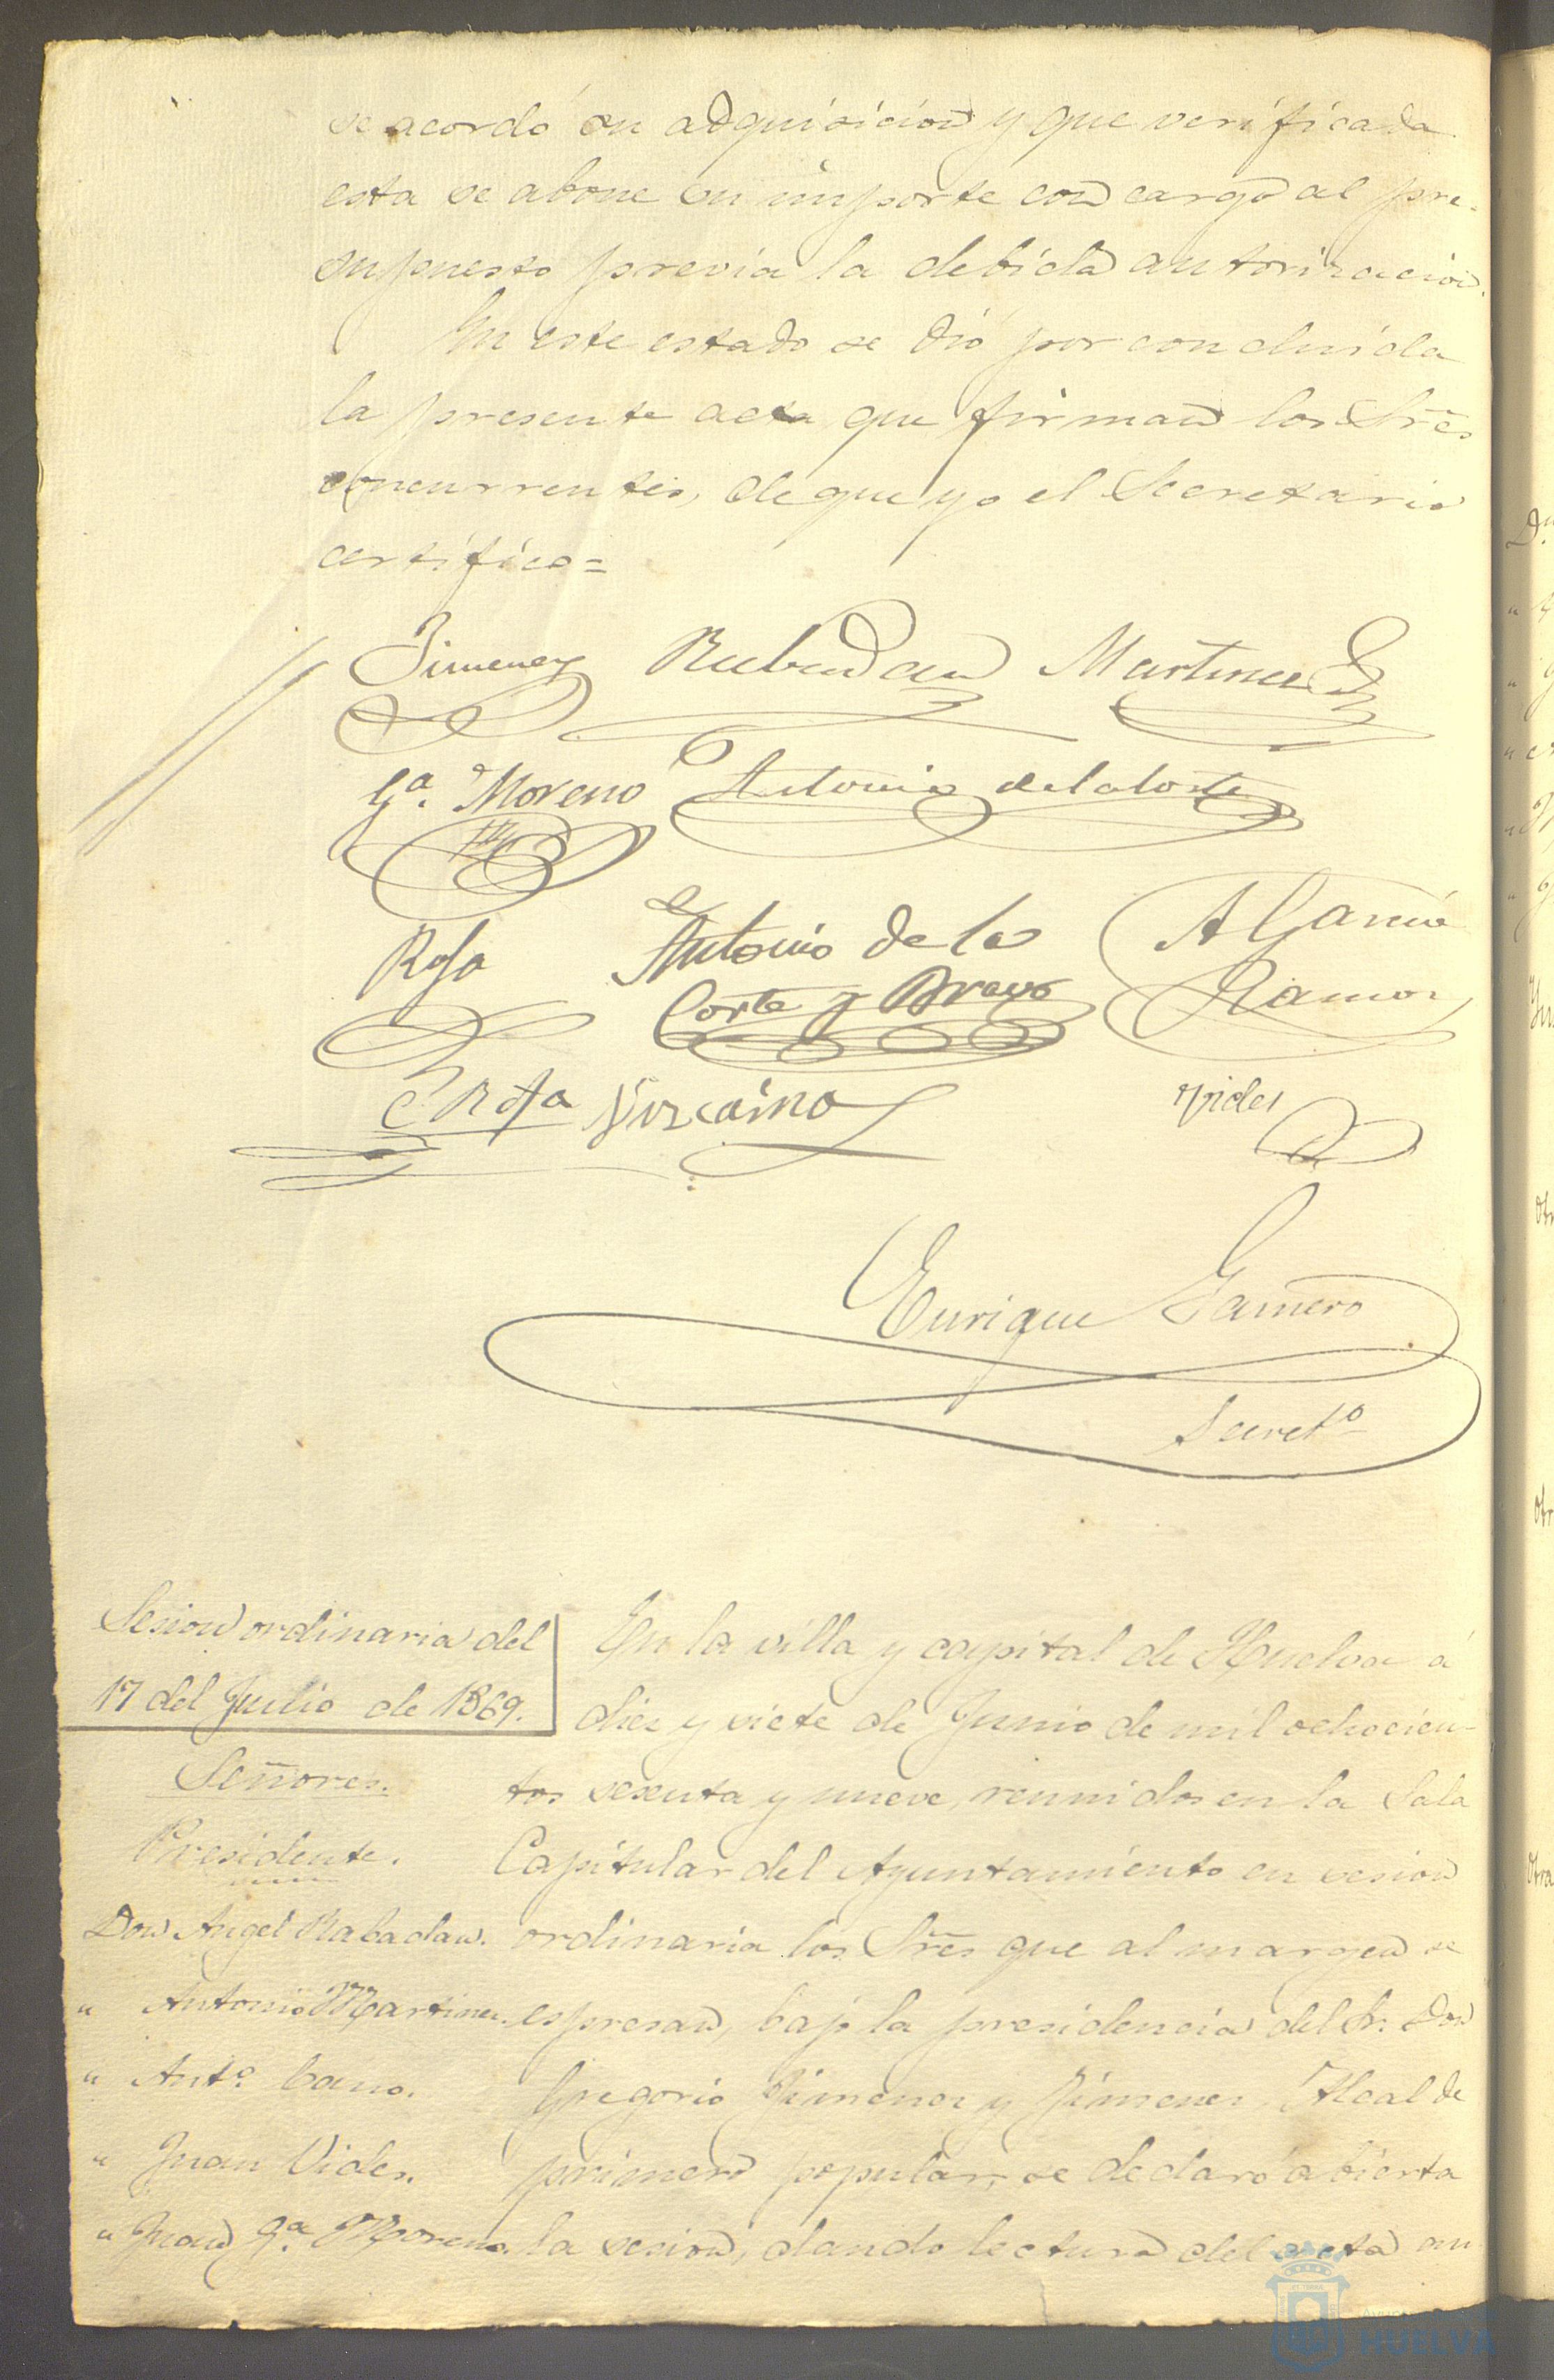 se acordó su adquisicion y que verificada
esta se abone su importe con cargo al pre-
supuesto previa la debida autorizacion.
En este estado se dió por concluida
la presente acta que firman los Sres
concurrentes, de que yo el Secretario
certifico=
Jimenez Rabadan Martinez
Ga. Moreno Antonio de la Corte
Rofa Antonio de la A Garcia
Corte y Bravo Ramos
C. Rofa Vizcaino Vides
Enrique Gamero
Secreto
Sesion ordinaria del
17 del Junio de 1869.
Señores.
Presidente.
Don Angel Rabadan.
" Antonio Martinez.
" Anto. Cano.
" Juan Vides.
" Juan Ga. Moreno.
En la villa y capital de Huelva á
diez y siete de Junio de mil ochocien-
tos sesenta y nueve, reunidos en la Sala
Capitular del Ayuntamiento en sesion
ordinaria los Sres que al margen se
espresan, bajo la presidencia del Sr. Don
Gregorio Jimenez y Jimenez, Alcalde
primero popular, se declaró abierta
la sesion, dando lectura del acta an
HUELVA